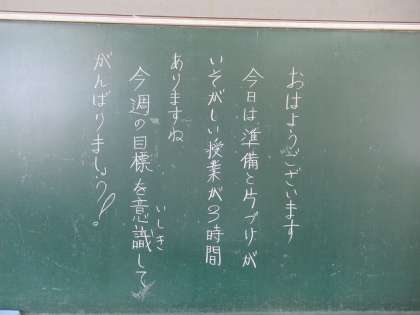 おはようございます
今日は準備と片づけが
いそがしい授業が3時間
ありますね
今週の目標を意識して
いしき
がんばりましょう!